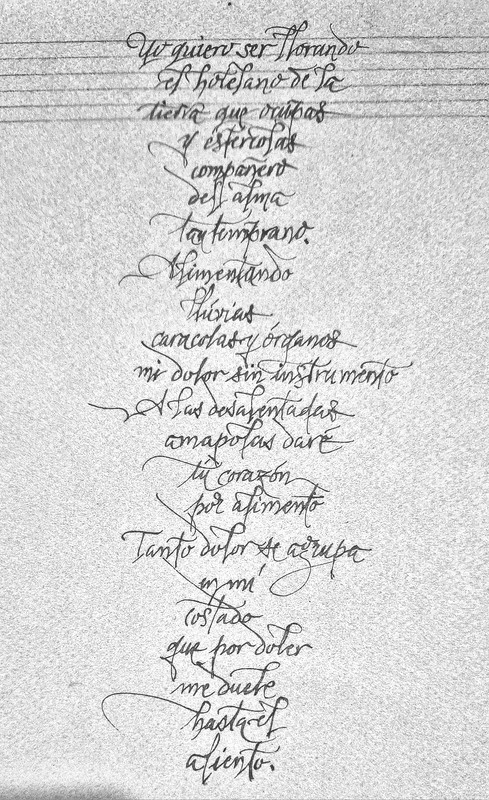 Yo quiero ser llorando
el hotelano de la
tierra que ocupas
y estercolas
compañero
del alma
tan temprano.
Alimentando
lluvias
caracolas y órganos
mi dolor sin instrumento
A las desalentadas
amapolas daré
tú corazón
por alimento
Tanto dolor se agrupa
en mí
costado
que por doler
me duele
hasta el
aliento.